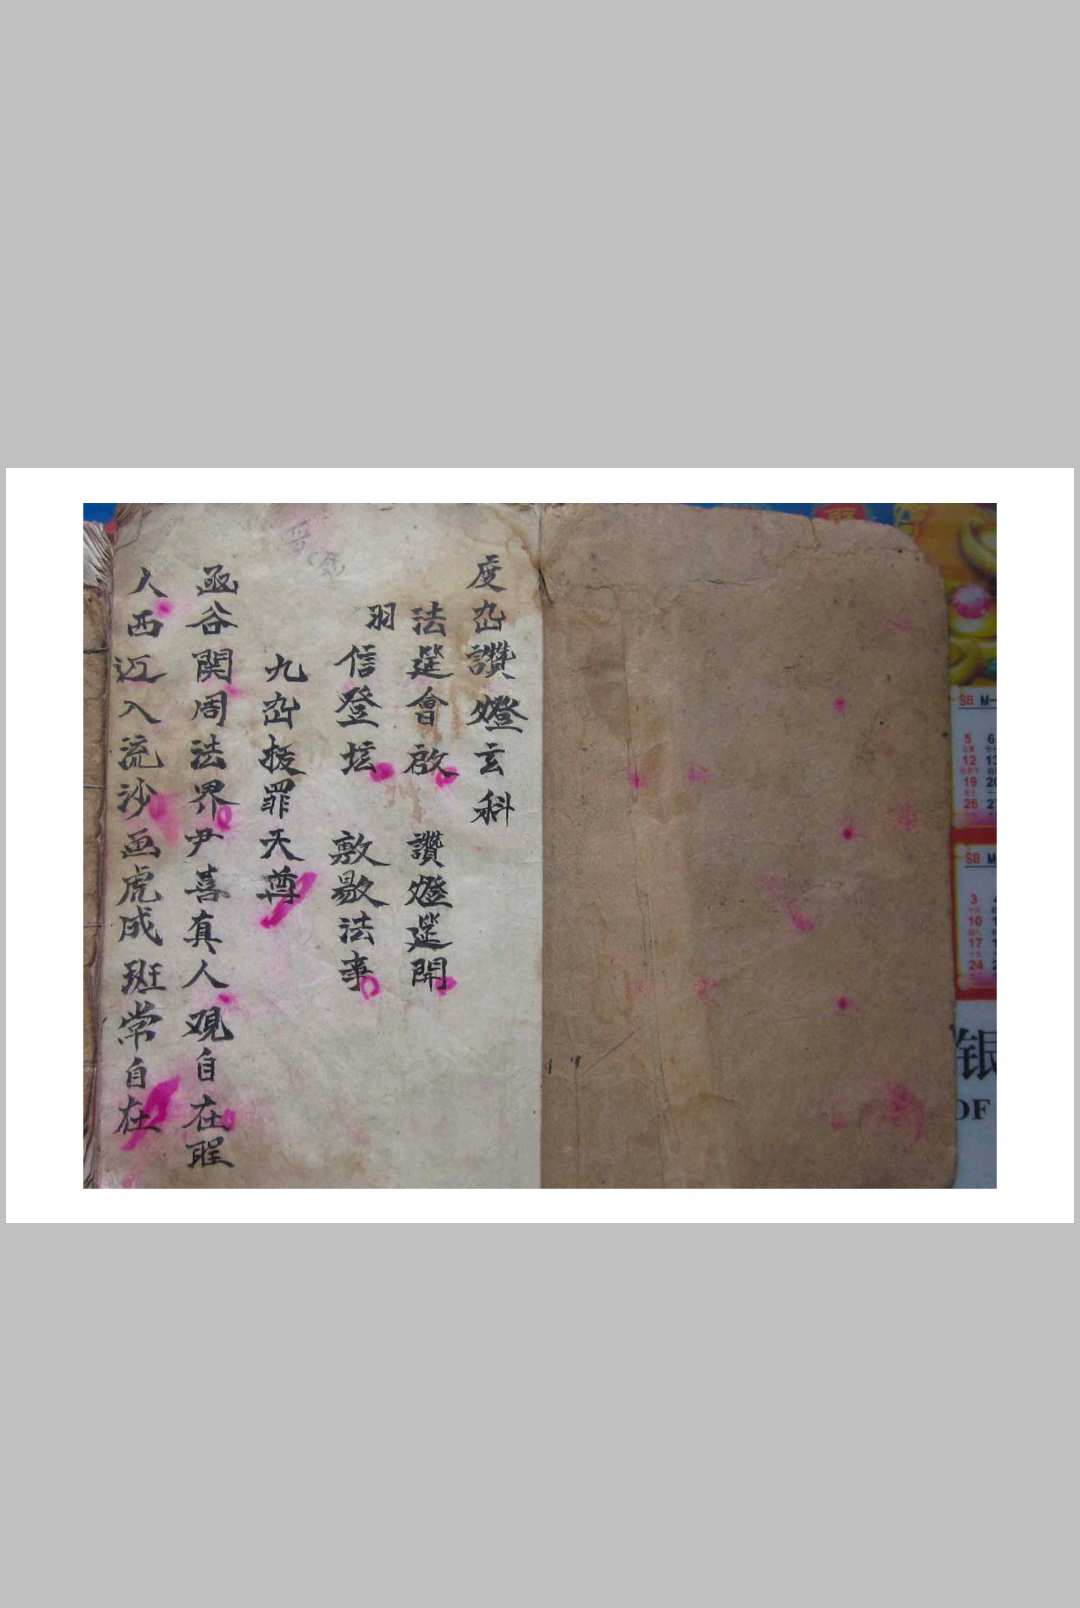 度岀讚燈玄科
法筵會啟 讚燈筵開
羽信登坛 敷歇法事
九岀拔罪天尊
函谷関周法界尹喜真人观自在
人西迈入流沙画虎成班常自在
SB M
5 6
12 13
19 20
26 27
SB M
3
10
17
24
银
OF